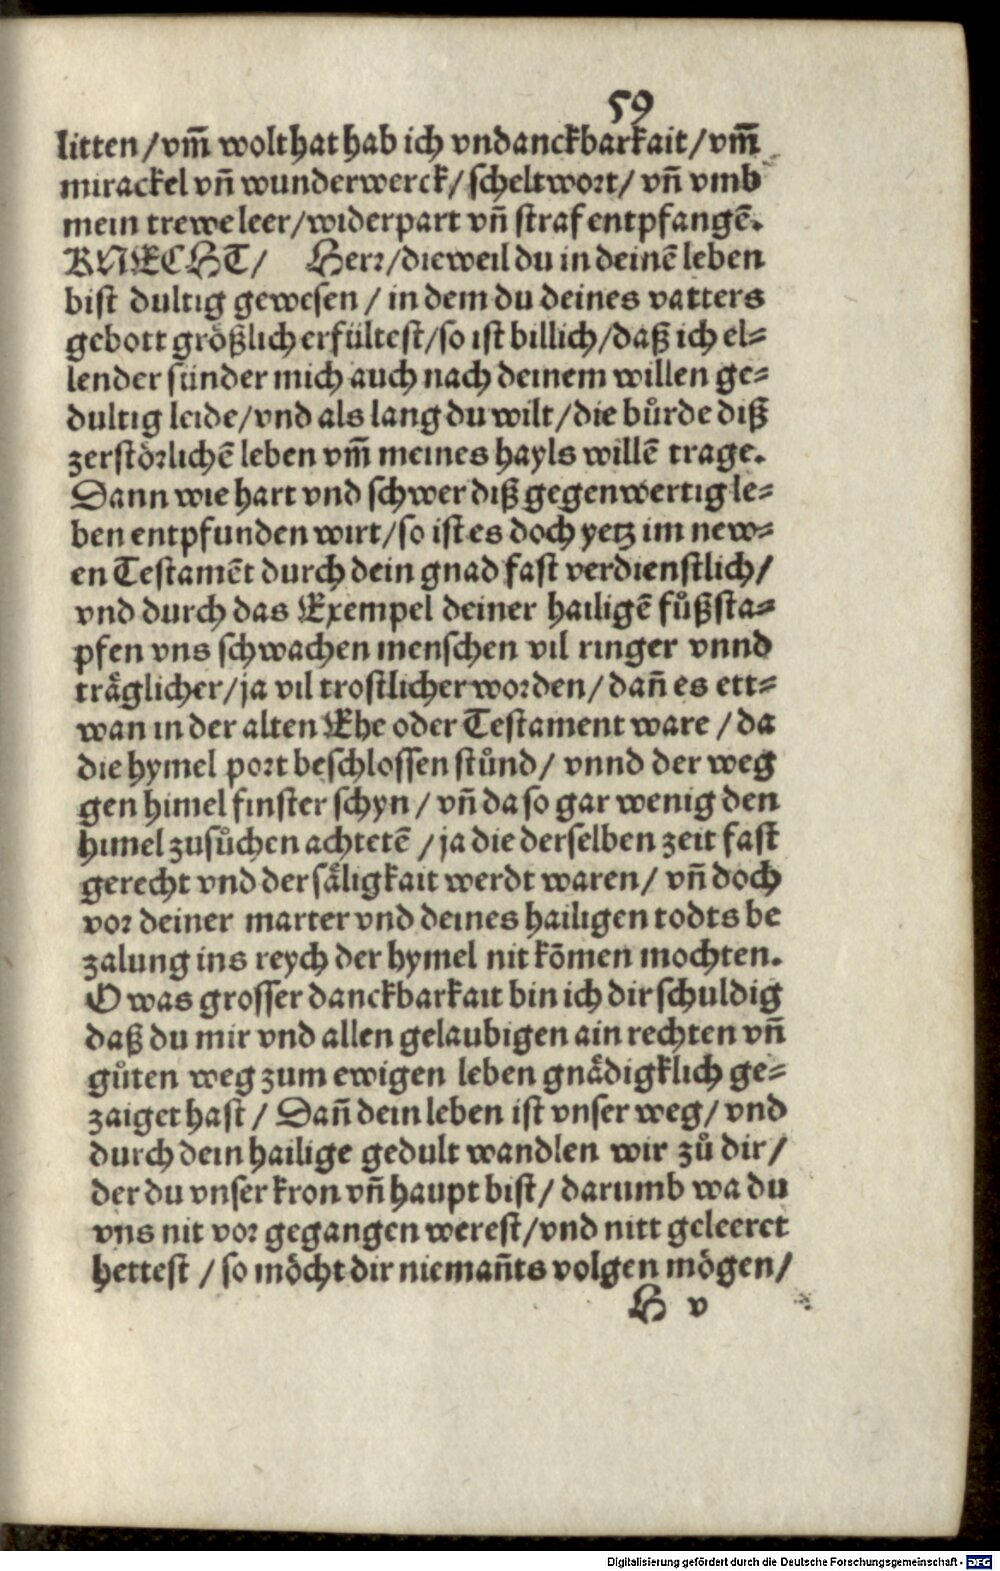 59
litten /vm̃ wolthat hab ich vndanckbarkait/vm̃
mirackel vñ wunderwerck/ scheltwort/ vñ vmb
mein trewe leer/widerpart vñ straf entpfangē.
KNECHT/ Herr/dieweil du in deinē leben
bist dultig gewesen / in dem du deines vatters
gebott größlich erfültest/so ist billich/daß ich el⸗
lender sünder mich auch nach deinem willen ge⸗
dultig leide/vnd als lang du wilt/die bůrde diß
zerstörlichē leben vm̃ meines hayls willē trage.
Dann wie hart vnd schwer diß gegenwertig le⸗
ben entpfunden wirt/so ist es doch yetz im new⸗
en Testamēt durch dein gnad fast verdienstlich/
vnd durch das Exempel deiner hailigē fůßsta⸗
pfen vns schwachen menschen vil ringer vnnd
träglicher/ja vil trostlicher worden/dañ es ett⸗
wan in der alten Ehe oder Testament ware /da
die hymel port beschlossen stůnd/ vnnd der weg
gen himel finster schyn/ vñ da so gar wenig den
himel zusůchen achtetē /ja die derselben zeit fast
gerecht vnd der säligkait werdt waren/ vñ doch
vor deiner marter vnd deines hailigen todts be
zalung ins reych der hymel nit kōmen mochten.
O was grosser danckbarkait bin ich dir schuldig
daß du mir vnd allen gelaubigen ain rechten vñ
gůten weg zum ewigen leben gnädigklich ge⸗
zaiget hast / Dañ dein leben ist vnser weg/ vnd
durch dein hailige gedult wandlen wir zů dir/
der du vnser kron vñ haupt bist/ darumb wa du
vns nit vor gegangen werest/vnd nitt geleeret
hettest /so möcht dir niemañts volgen mögen/
H v
Digitalisierung gefördert durch die Deutsche Forschungsgemeinschaft - DFG